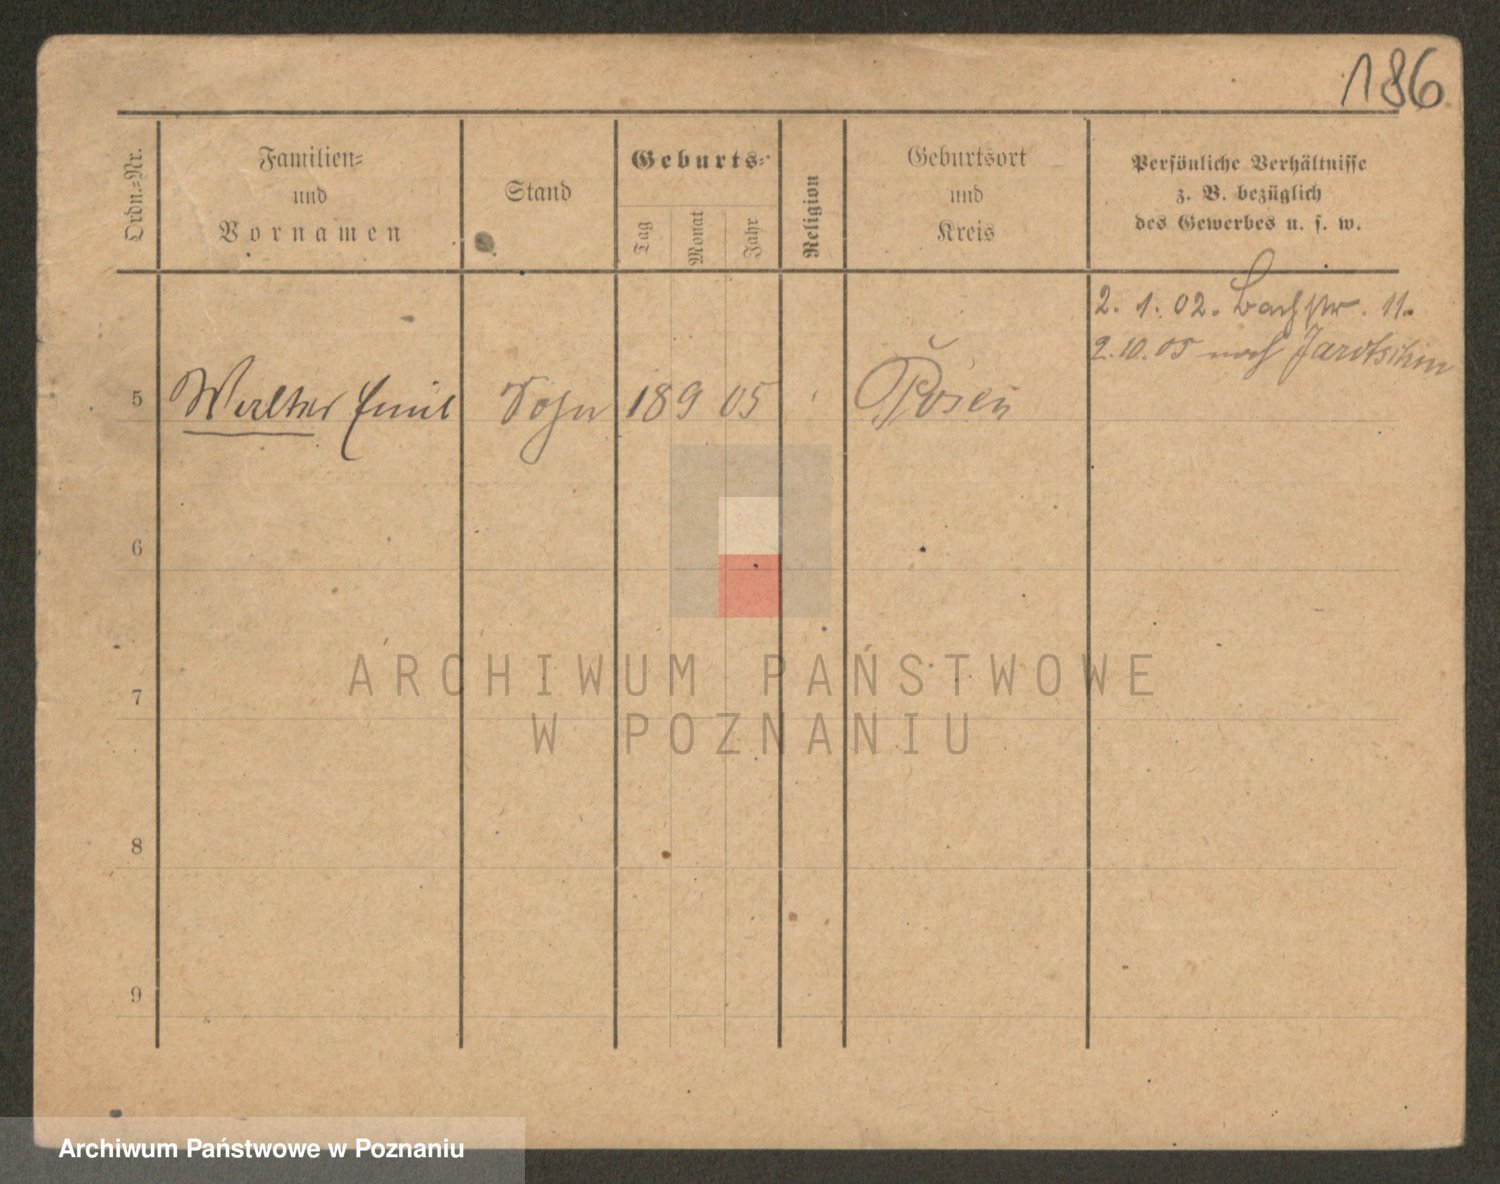 186
Ordn.-Nr.
Familien-
und
Vornamen
Stand
Geburts-
Tag
Monat
Jahr
Religion
Geburtsort
und
Kreis
Persönliche Verhältnisse
z. B. bezüglich
des Gewerbes u. s. w.
2. 1. 02. Bachstr. 11.
2. 10. 05 nach Jarotschin
5 Walter Emil Sohn 18 9 05 Posen
6
7
8
9
ARCHIWUM PAŃSTWOWE
W POZNANIU
Archiwum Państwowe w Poznaniu